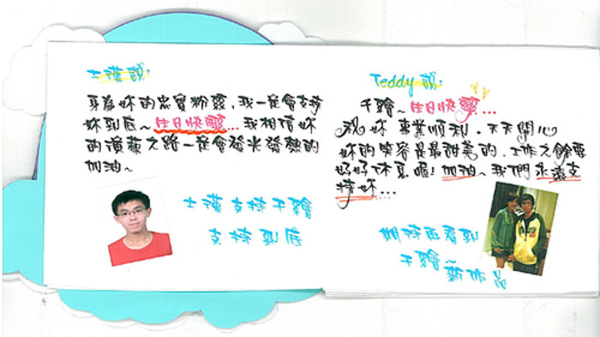 士漢說:
身為妳的忠實粉絲,我一定會支持
妳到底~生日快樂...我相信妳
的演藝之路一定會發光發熱的
加油~
士漢支持千繪
支持到底
Teddy 說:
千繪~生日快樂...
祝妳 事業順利,天天開心
妳的笑容是最甜美的,工作之餘要
好好休息喔!加油~我們永遠支
持妳...
期待再看到
千繪~
新作品